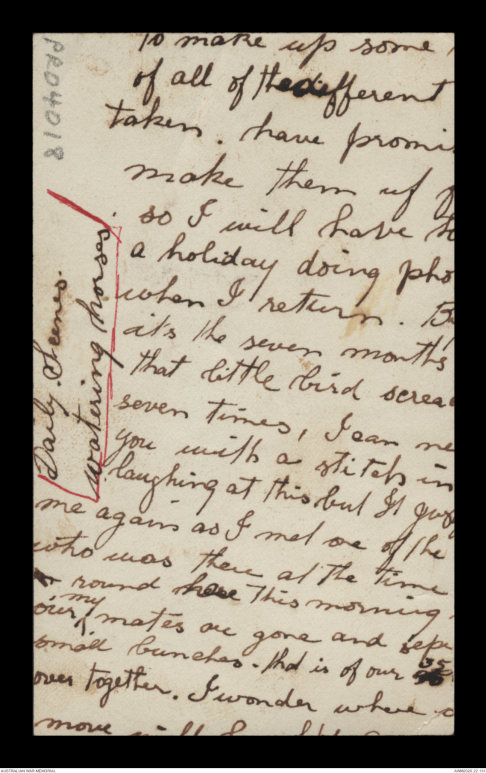 to make up some
of all of the different
taken. have promi
make them up f
so I will have
a holiday doing pho
when I return. B
it's the seven months
that little bird screa
seven times, I can ne
you with a stitch in
laughing at this but It
me again as I met one of the
who was there at the time
round here this morning
our my mates are gone and sepa
small bunches. that is of our 35
over together. I wonder where
move
Daily. Scenes.
watering horses.
PR04018
AUSTRALIAN WAR MEMORIAL